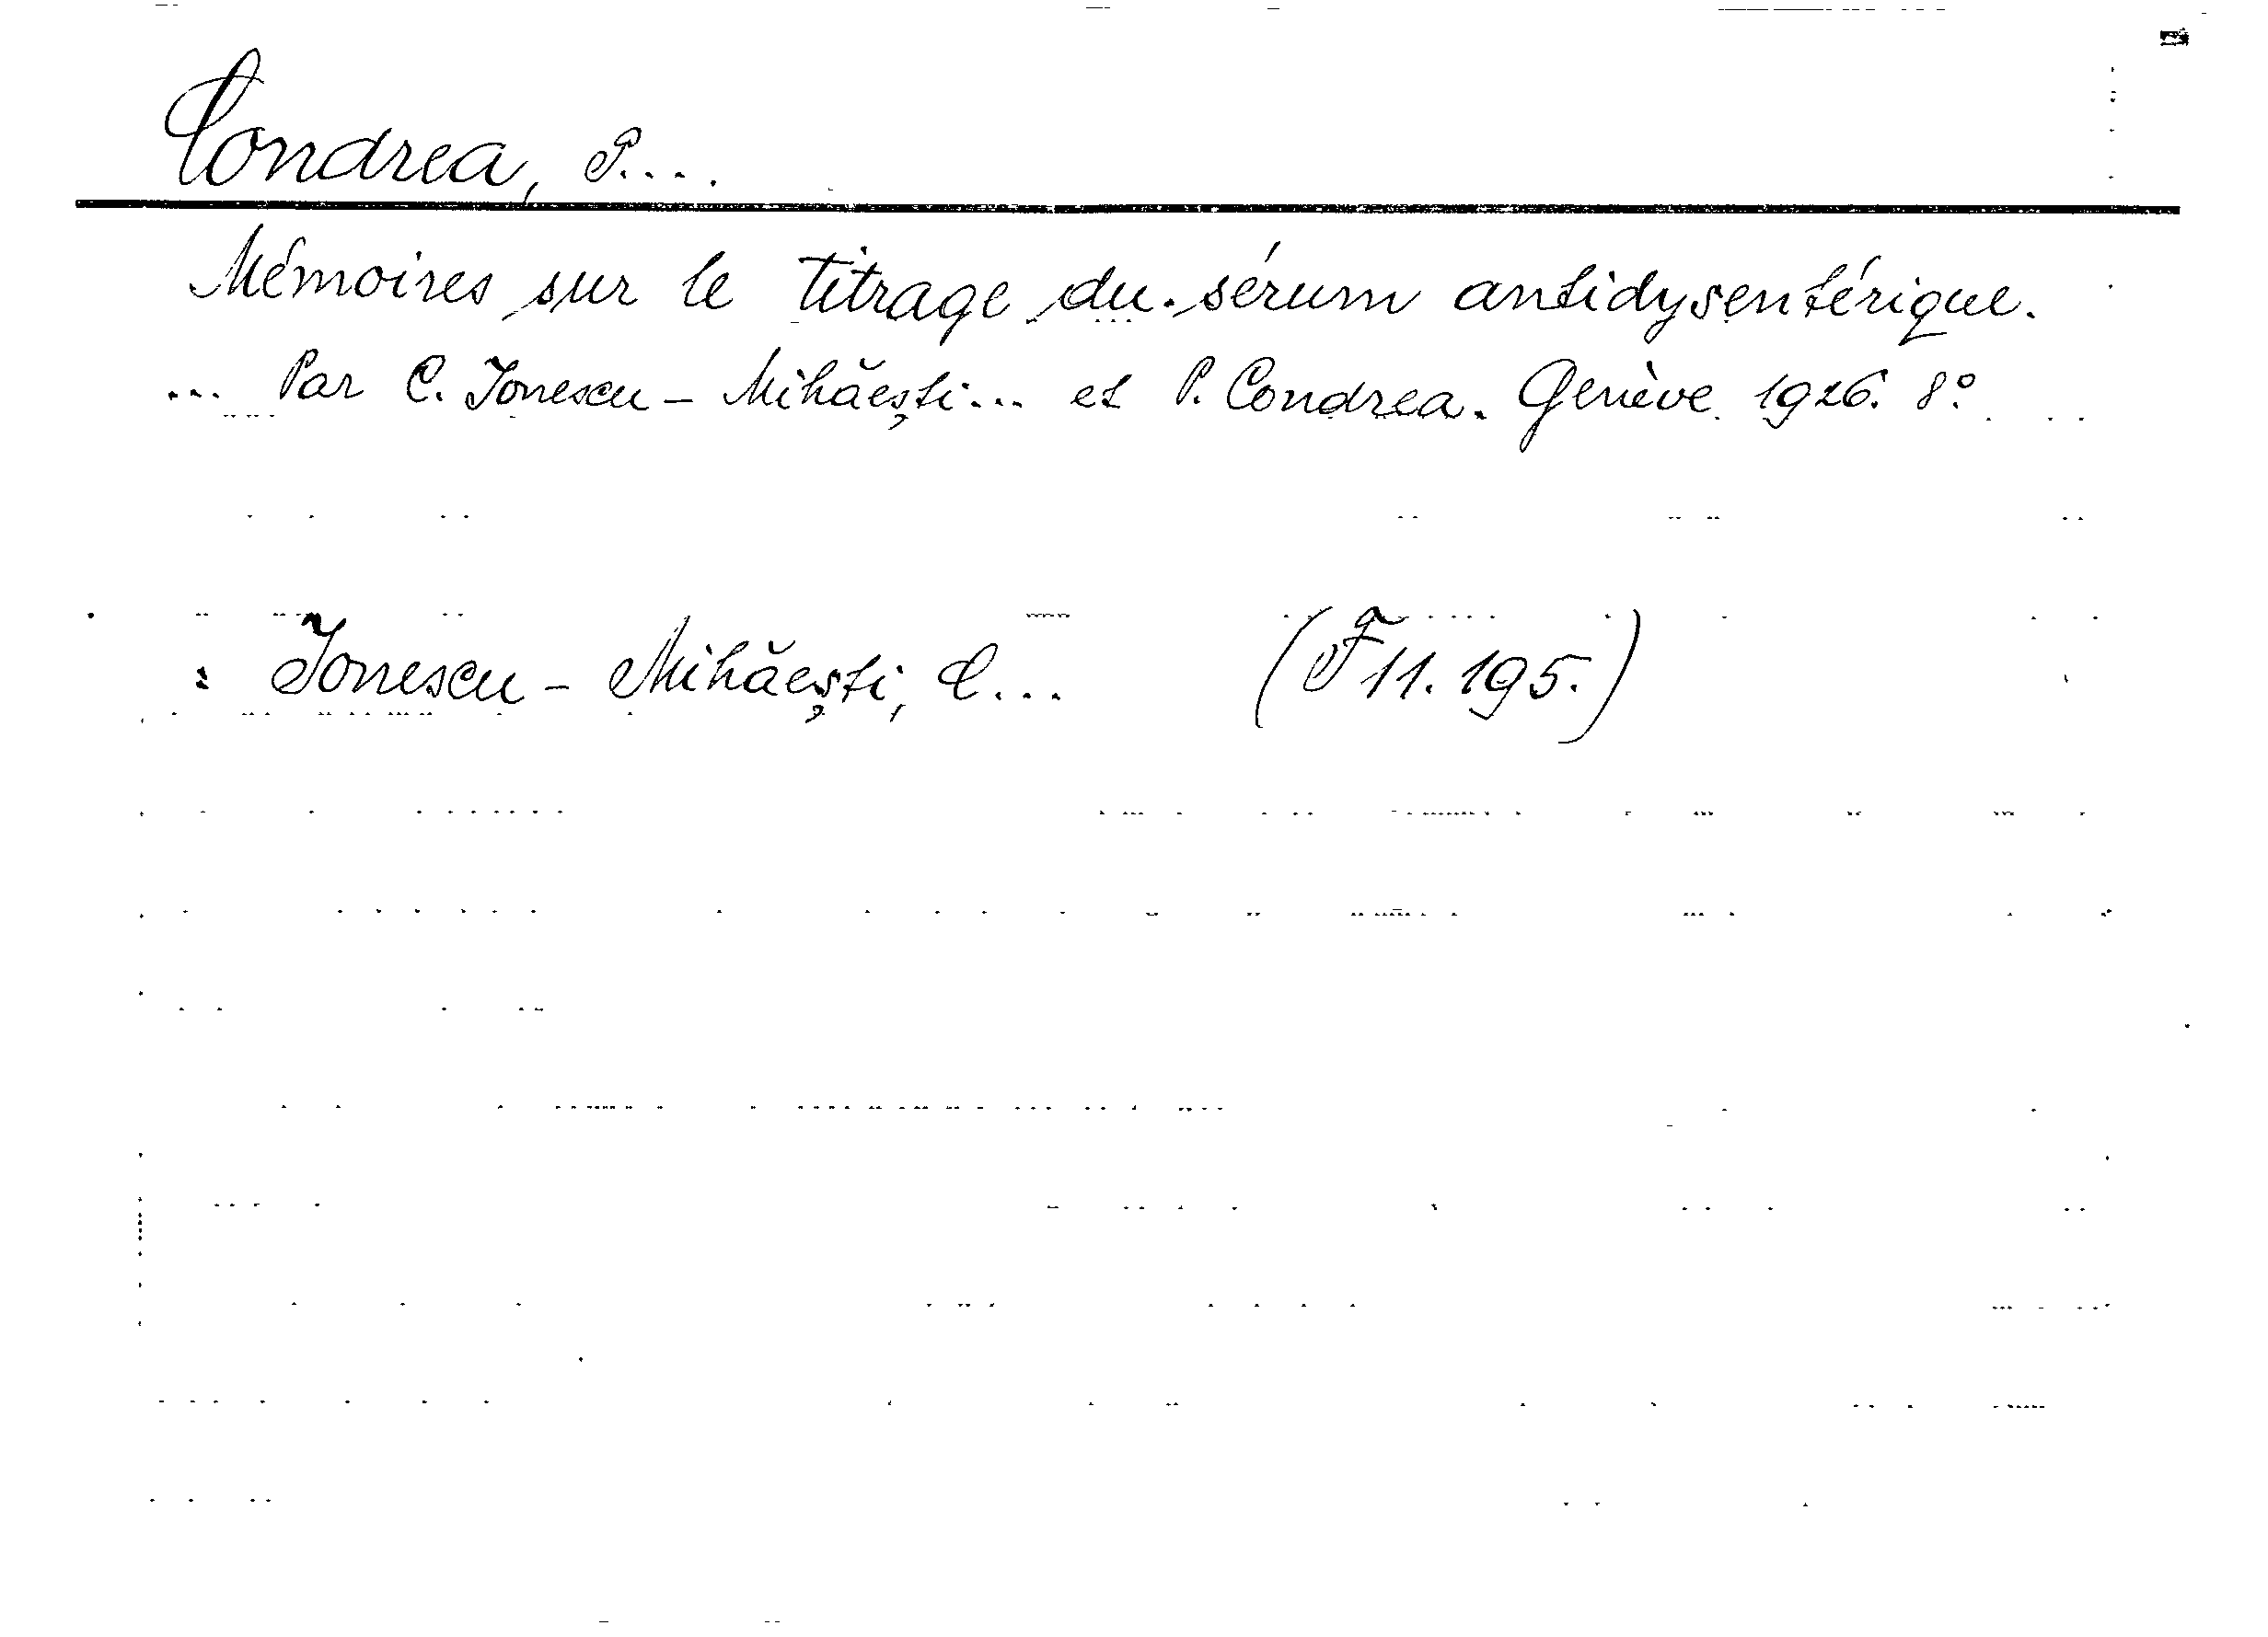 Condrea, P....
Mémoires sur le titrage du sérum antidysentérique.
... Par C. Ionescu - Mihăești... et P. Condrea. Genève 1926. 8°.
: Ionescu - Mihăești, C... (F 11. 195.)